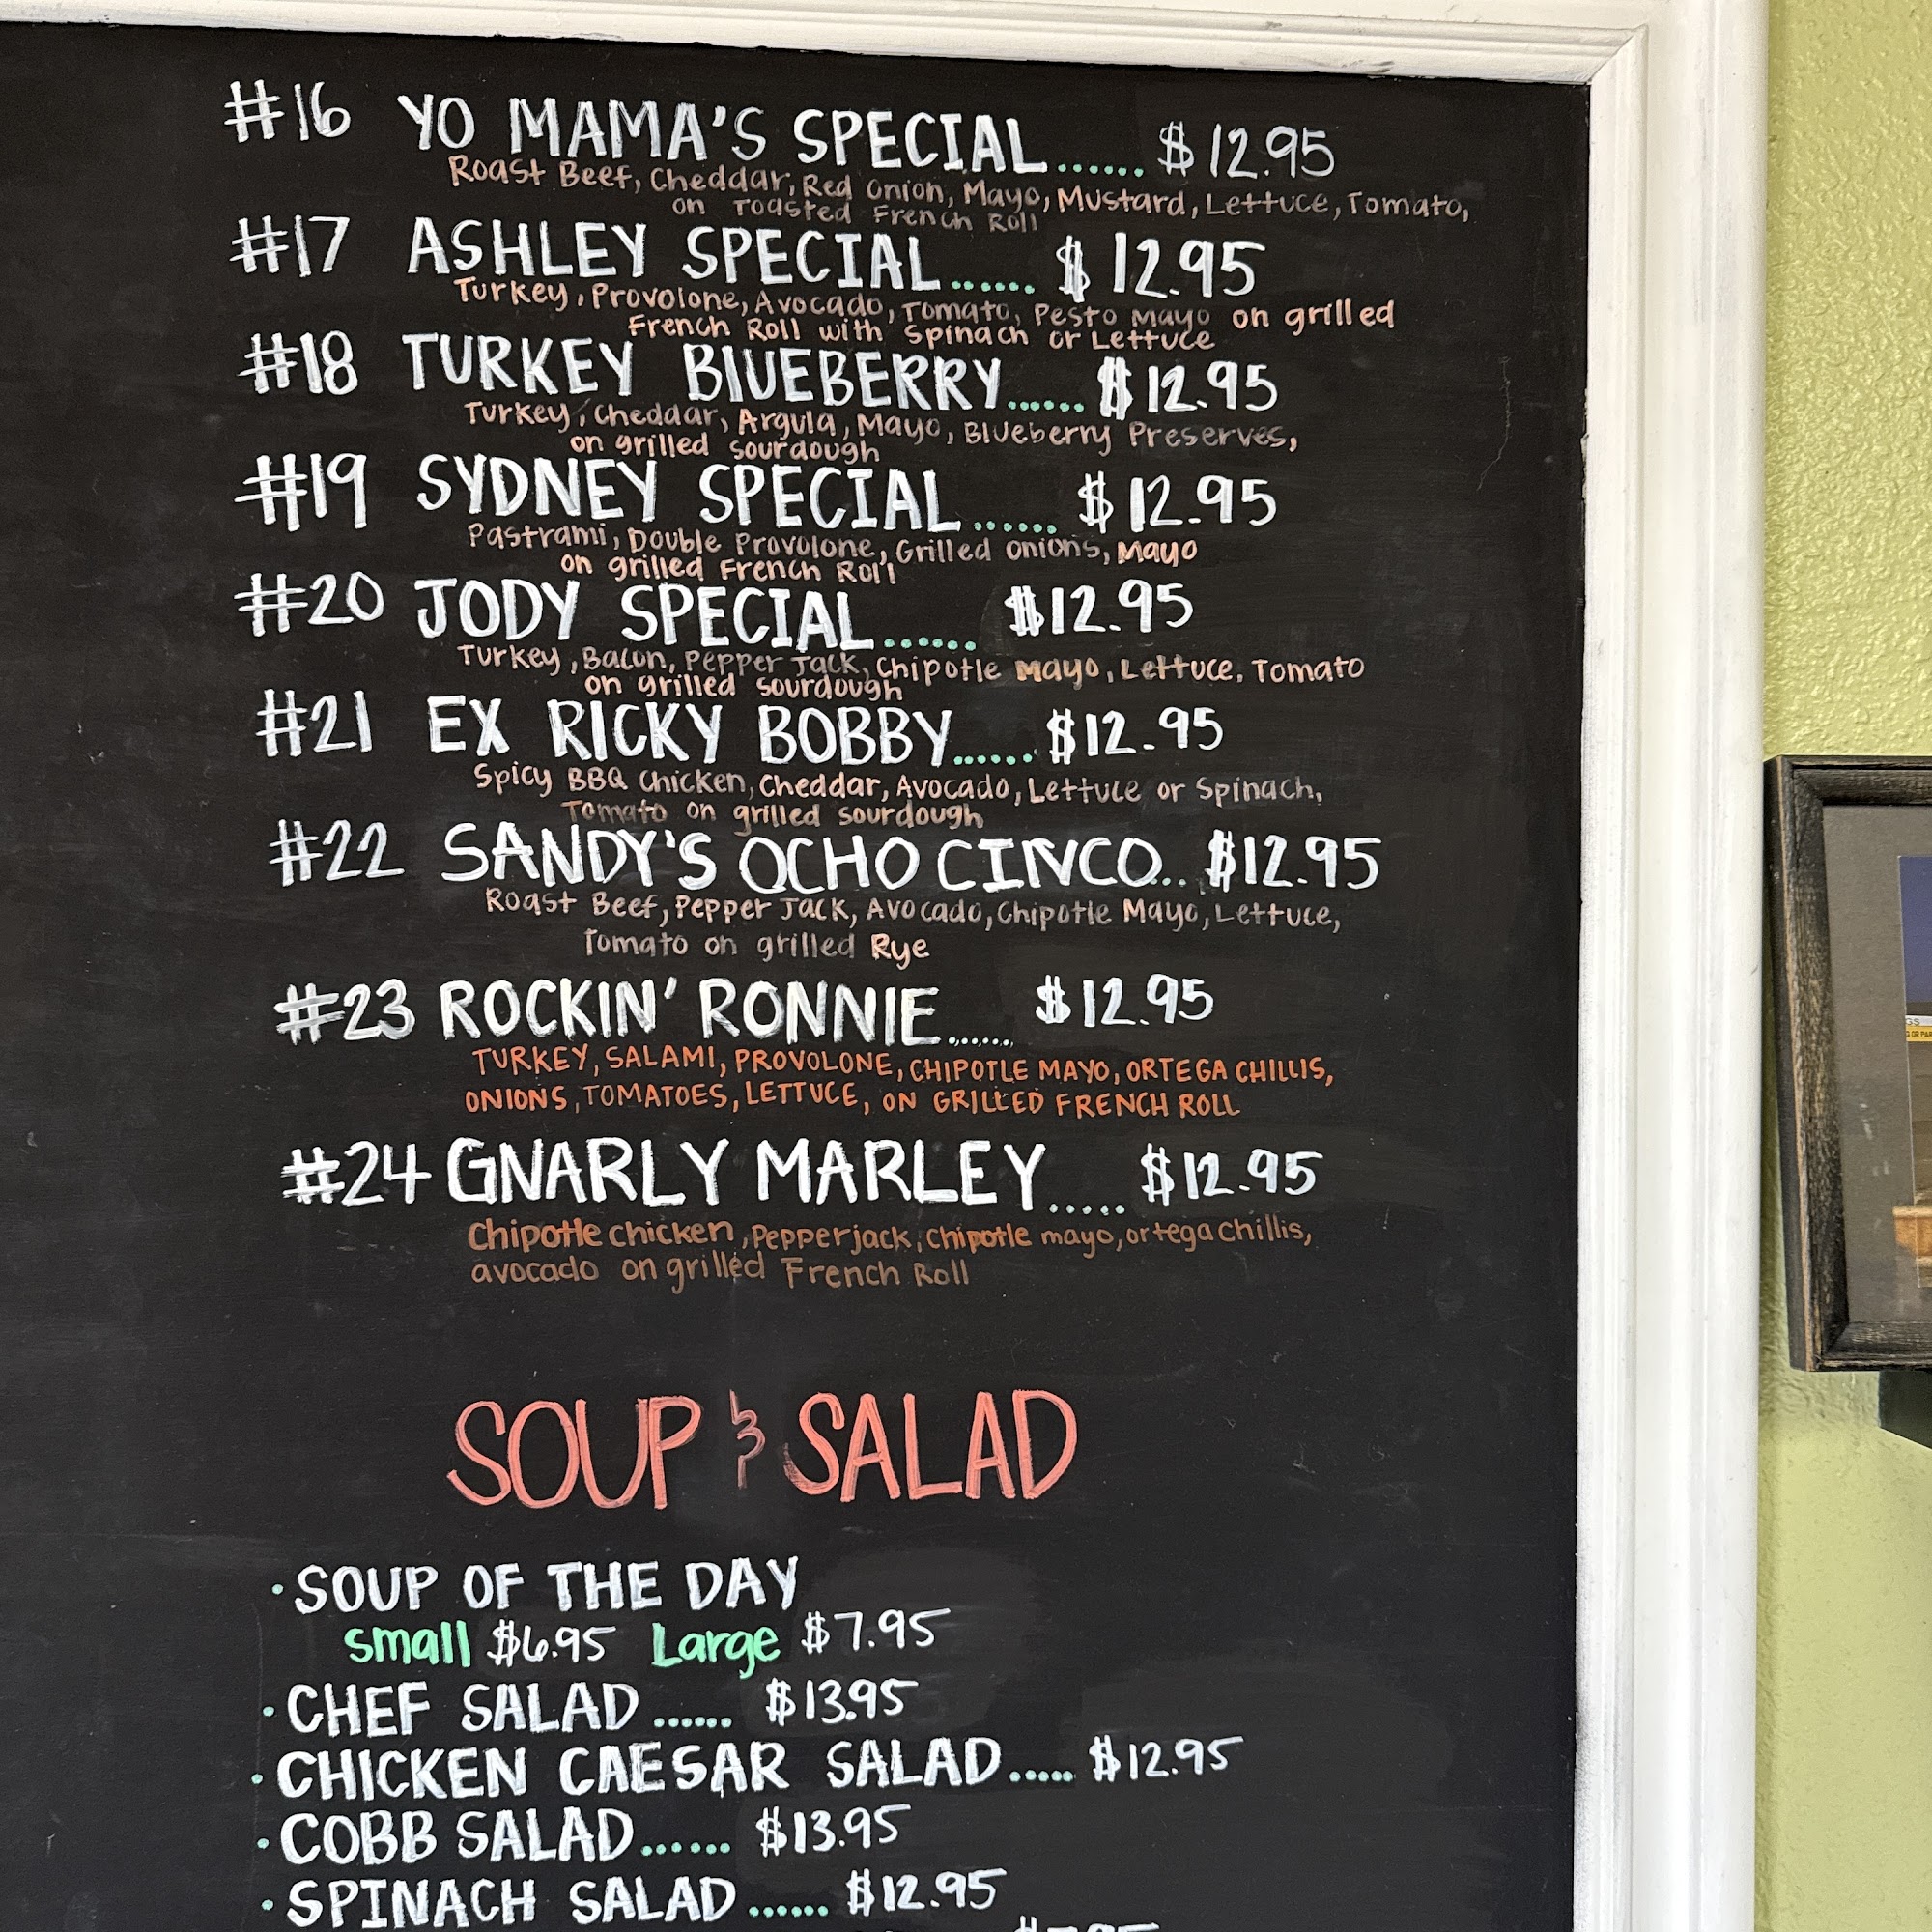 #16 YO MAMA'S SPECIAL...... $12.95
Roast Beef, Cheddar, Red Onion, Mayo, Mustard, Lettuce, Tomato,
on Toasted French Roll
#17 ASHLEY SPECIAL...... $12.95
Turkey, Provolone, Avocado, Tomato, Pesto Mayo on grilled
French Roll with Spinach or Lettuce
#18 TURKEY BLUEBERRY...... $12.95
Turkey, Cheddar, Argula, Mayo, Blueberry Preserves,
on grilled sourdough
#19 SYDNEY SPECIAL...... $12.95
Pastrami, Double Provolone, Grilled onions, Mayo
on grilled French Roll
#20 JODY SPECIAL...... $12.95
Turkey, Bacon, Pepper Jack, Chipotle Mayo, Lettuce, Tomato
on grilled sourdough
#21 EX RICKY BOBBY...... $12.95
Spicy BBQ Chicken, Cheddar, Avocado, Lettuce or Spinach,
Tomato on grilled sourdough
#22 SANDY'S OCHO CINCO... $12.95
Roast Beef, Pepper Jack, Avocado, Chipotle Mayo, Lettuce,
Tomato on grilled Rye
#23 ROCKIN' RONNIE...... $12.95
TURKEY, SALAMI, PROVOLONE, CHIPOTLE MAYO, ORTEGA CHILLIS,
ONIONS, TOMATOES, LETTUCE, ON GRILLED FRENCH ROLL
#24 GNARLY MARLEY..... $12.95
Chipotle chicken, Pepperjack, Chipotle mayo, ortega chillis,
avocado on grilled French Roll
SOUP & SALAD
· SOUP OF THE DAY
Small $6.95 Large $7.95
· CHEF SALAD ...... $13.95
· CHICKEN CAESAR SALAD..... $12.95
· COBB SALAD...... $13.95
· SPINACH SALAD...... $12.95